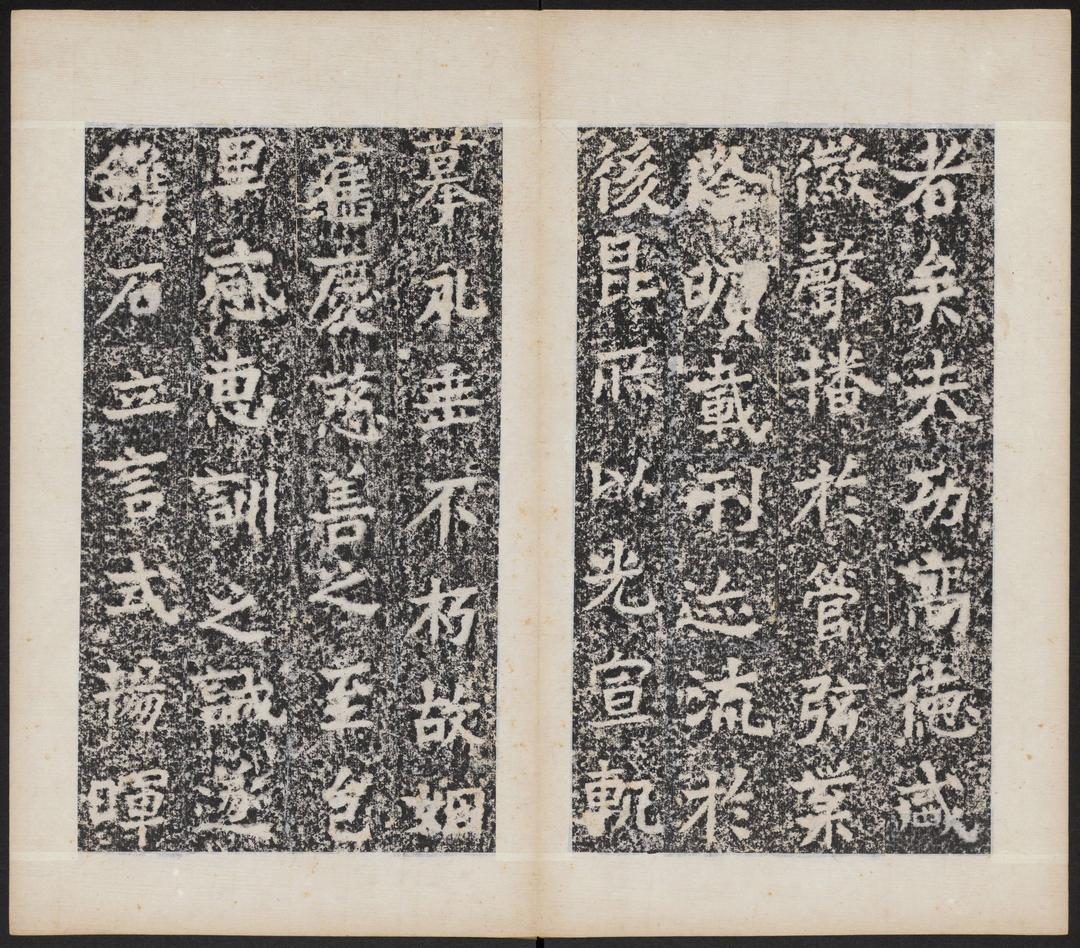 者矣夫功高德盛
徽聲播於管弦業
隆曠載刊迹流於
後昆所以光宣軌
摹永垂不朽故姻
舊慶慈善之至邑
里感惠訓之誠遂
鐫石立言式揚暉